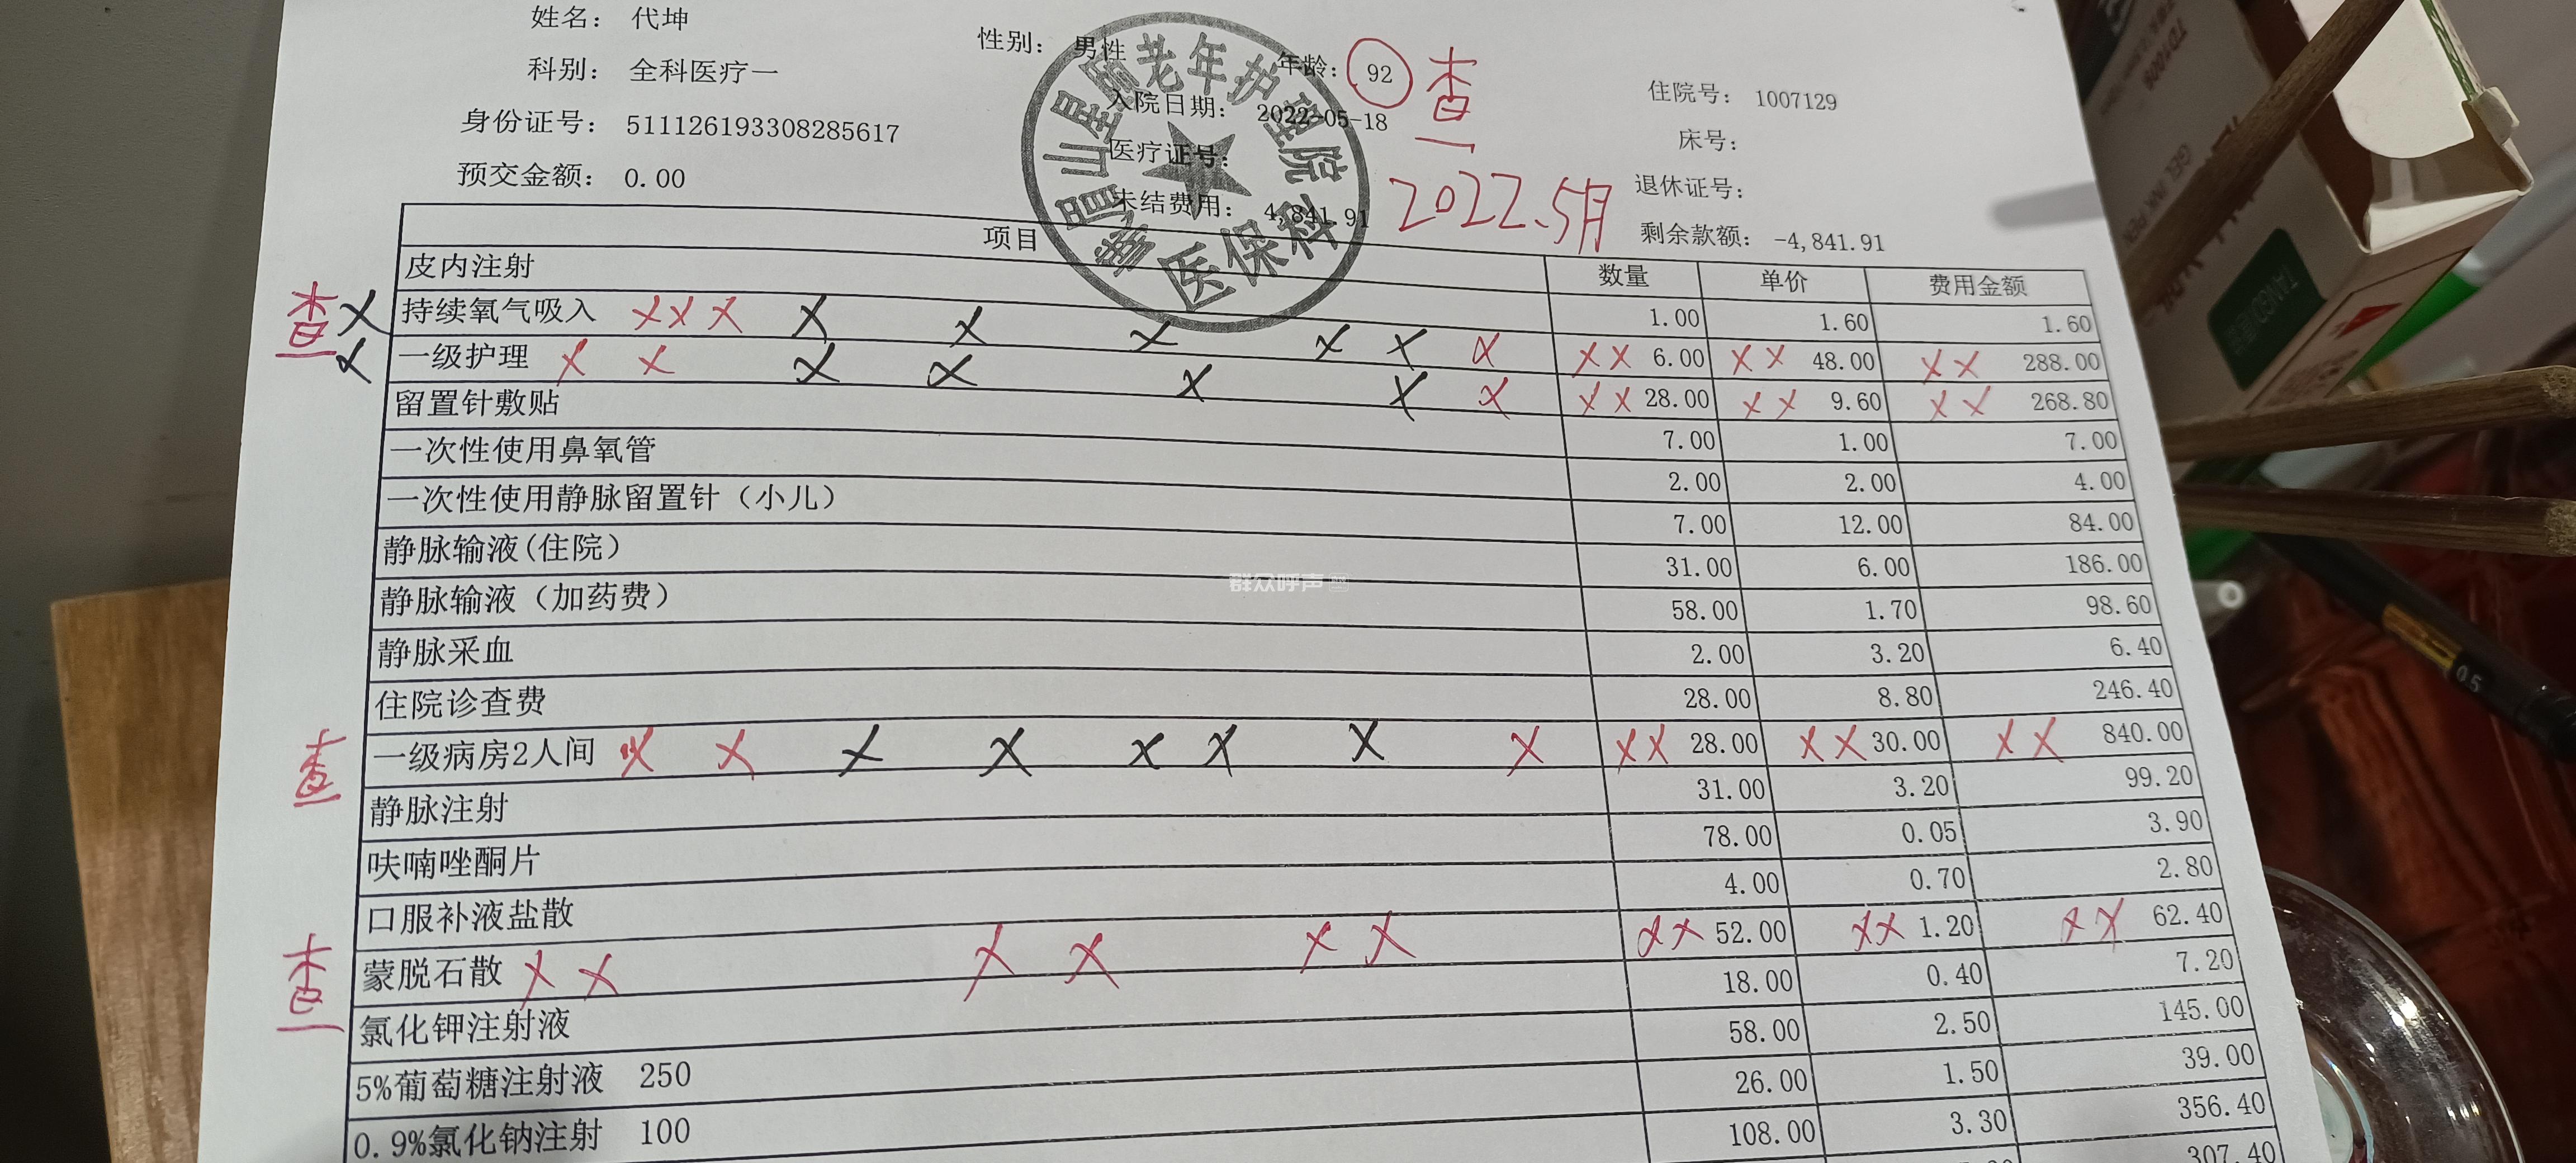 姓名： 代坤 性别： 男性 年龄： 92 查 住院号： 1007129
科别： 全科医疗一 入院日期： 2022-05-18 床号：
身份证号： 511126193308285617 医疗证号： 退休证号：
预交金额： 0.00 未结费用： 4,841.91 2022.5月 剩余款额： -4,841.91
老年护理院
医保科
项目 数量 单价 费用金额
皮内注射 1.00 1.60 1.60
查 X 持续氧气吸入 X X X X X X X X X X X 6.00 X X 48.00 X X 288.00
X 一级护理 X X X X X X X X X 28.00 X X 9.60 X X 268.80
留置针敷贴 7.00 1.00 7.00
一次性使用鼻氧管 2.00 2.00 4.00
一次性使用静脉留置针（小儿） 7.00 12.00 84.00
静脉输液(住院） 31.00 6.00 186.00
静脉输液（加药费） 58.00 1.70 98.60
静脉采血 2.00 3.20 6.40
住院诊查费 28.00 8.80 246.40
查 一级病房2人间 X X X X X X X X X X 28.00 X X 30.00 X X 840.00
静脉注射 31.00 3.20 99.20
呋喃唑酮片 78.00 0.05 3.90
口服补液盐散 4.00 0.70 2.80
查 蒙脱石散 X X X X X X X X 52.00 X X 1.20 X X 62.40
氯化钾注射液 18.00 0.40 7.20
5%葡萄糖注射液 250 58.00 2.50 145.00
0.9%氯化钠注射 100 26.00 1.50 39.00
108.00 3.30 356.40
307.40
群众呼声
TANGO
GEL INK PEN
0.5